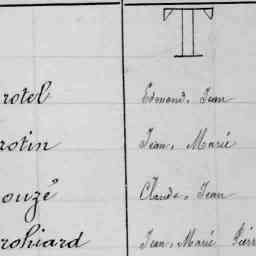 T
rotel Edmond, Jean
rotin Jean, Marie
ouzé Claude, Jean
rohiard Jean, Marie Pierr